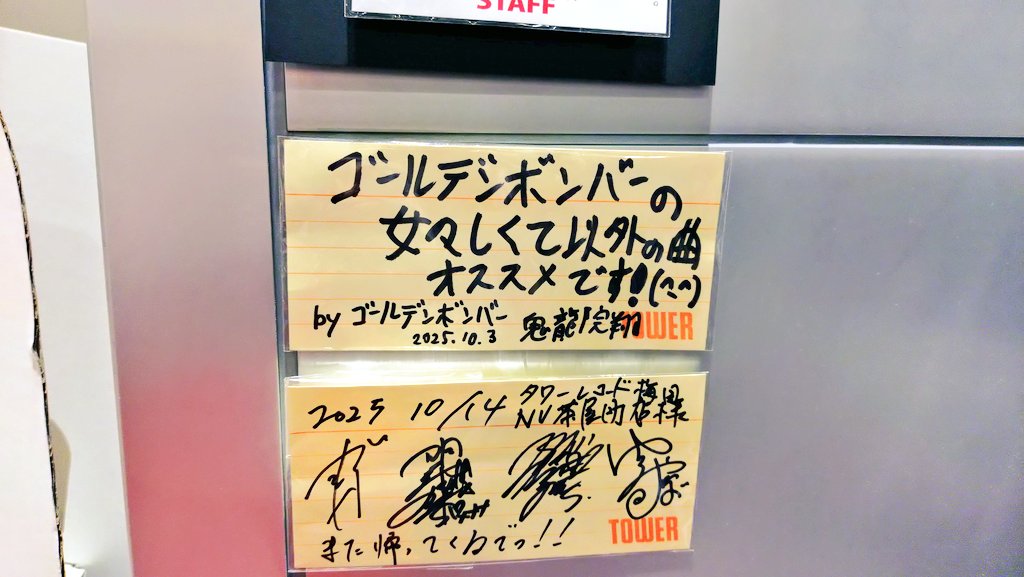 STAFF
ゴールデンボンバーの
女々しくて以外の曲
オススメです!(^-^)
by ゴールデンボンバー 鬼龍院翔
2025.10.3
TOWER
2025 10/14 タワーレコード梅田
NU茶屋町店様
TOWER
また帰ってくるでっ!!